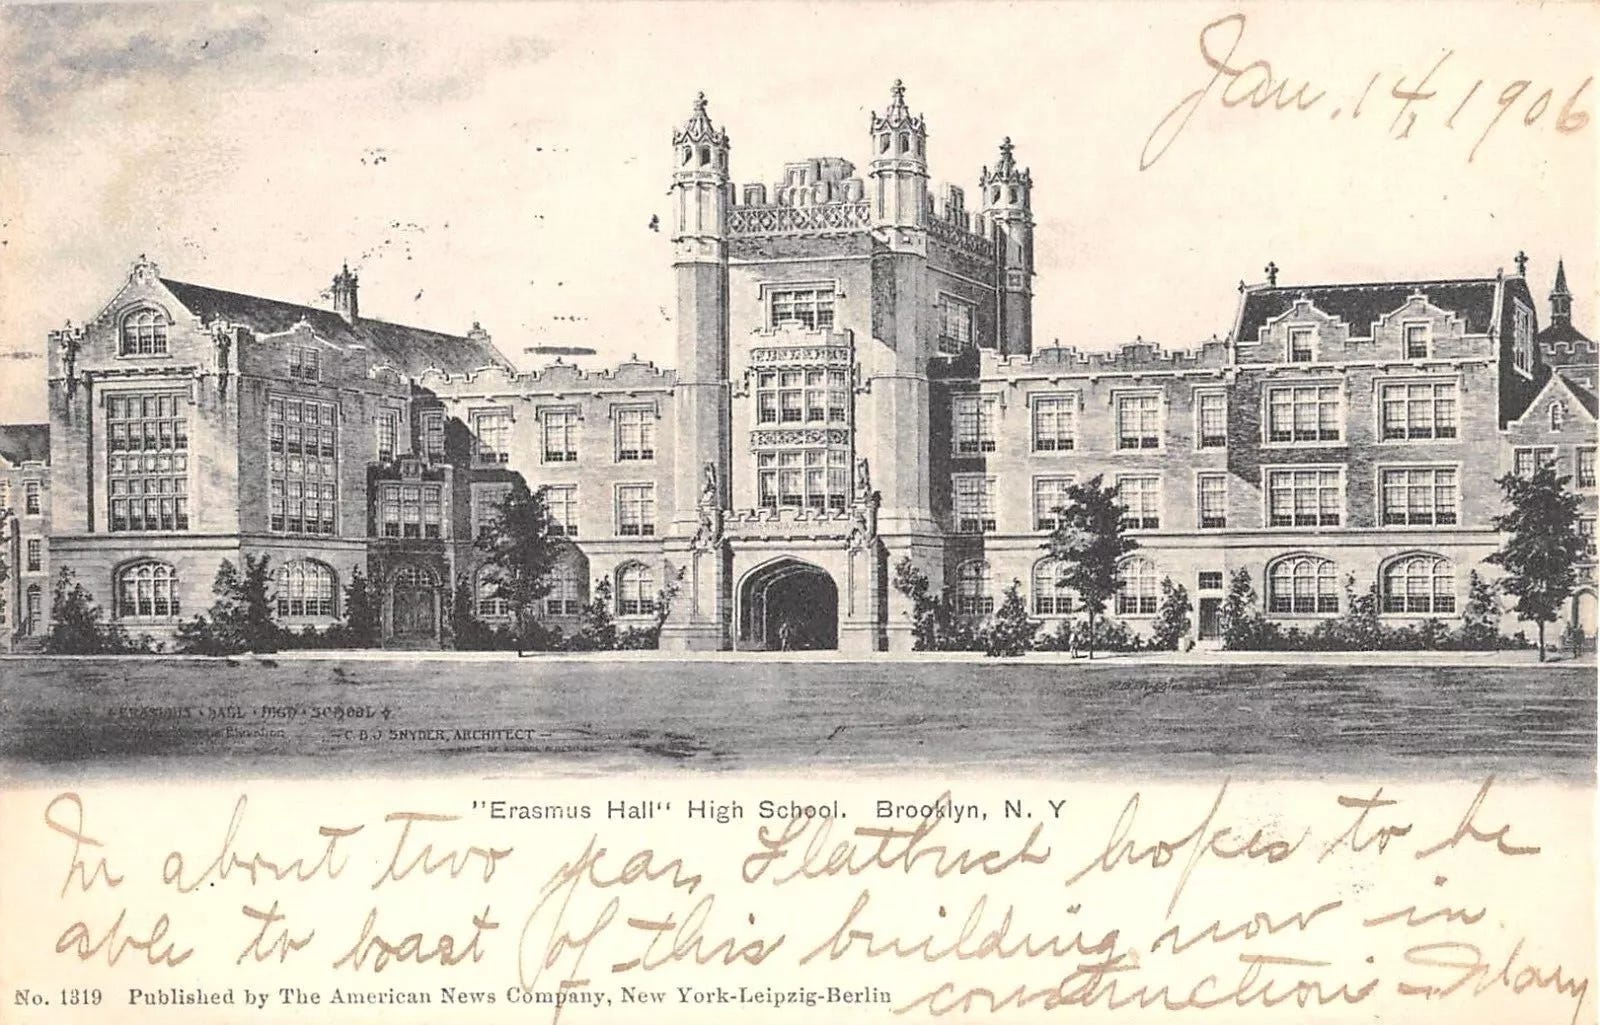 Jan. 14, 1906
ERASMUS · HALL · HIGH · SCHOOL
Elevation
— C. B. J. SNYDER, ARCHITECT —
"Erasmus Hall" High School. Brooklyn, N. Y
In about two years Flatbush hopes to be
able to boast of this building now in
construction – Mary
No. 1319 Published by The American News Company, New York-Leipzig-Berlin